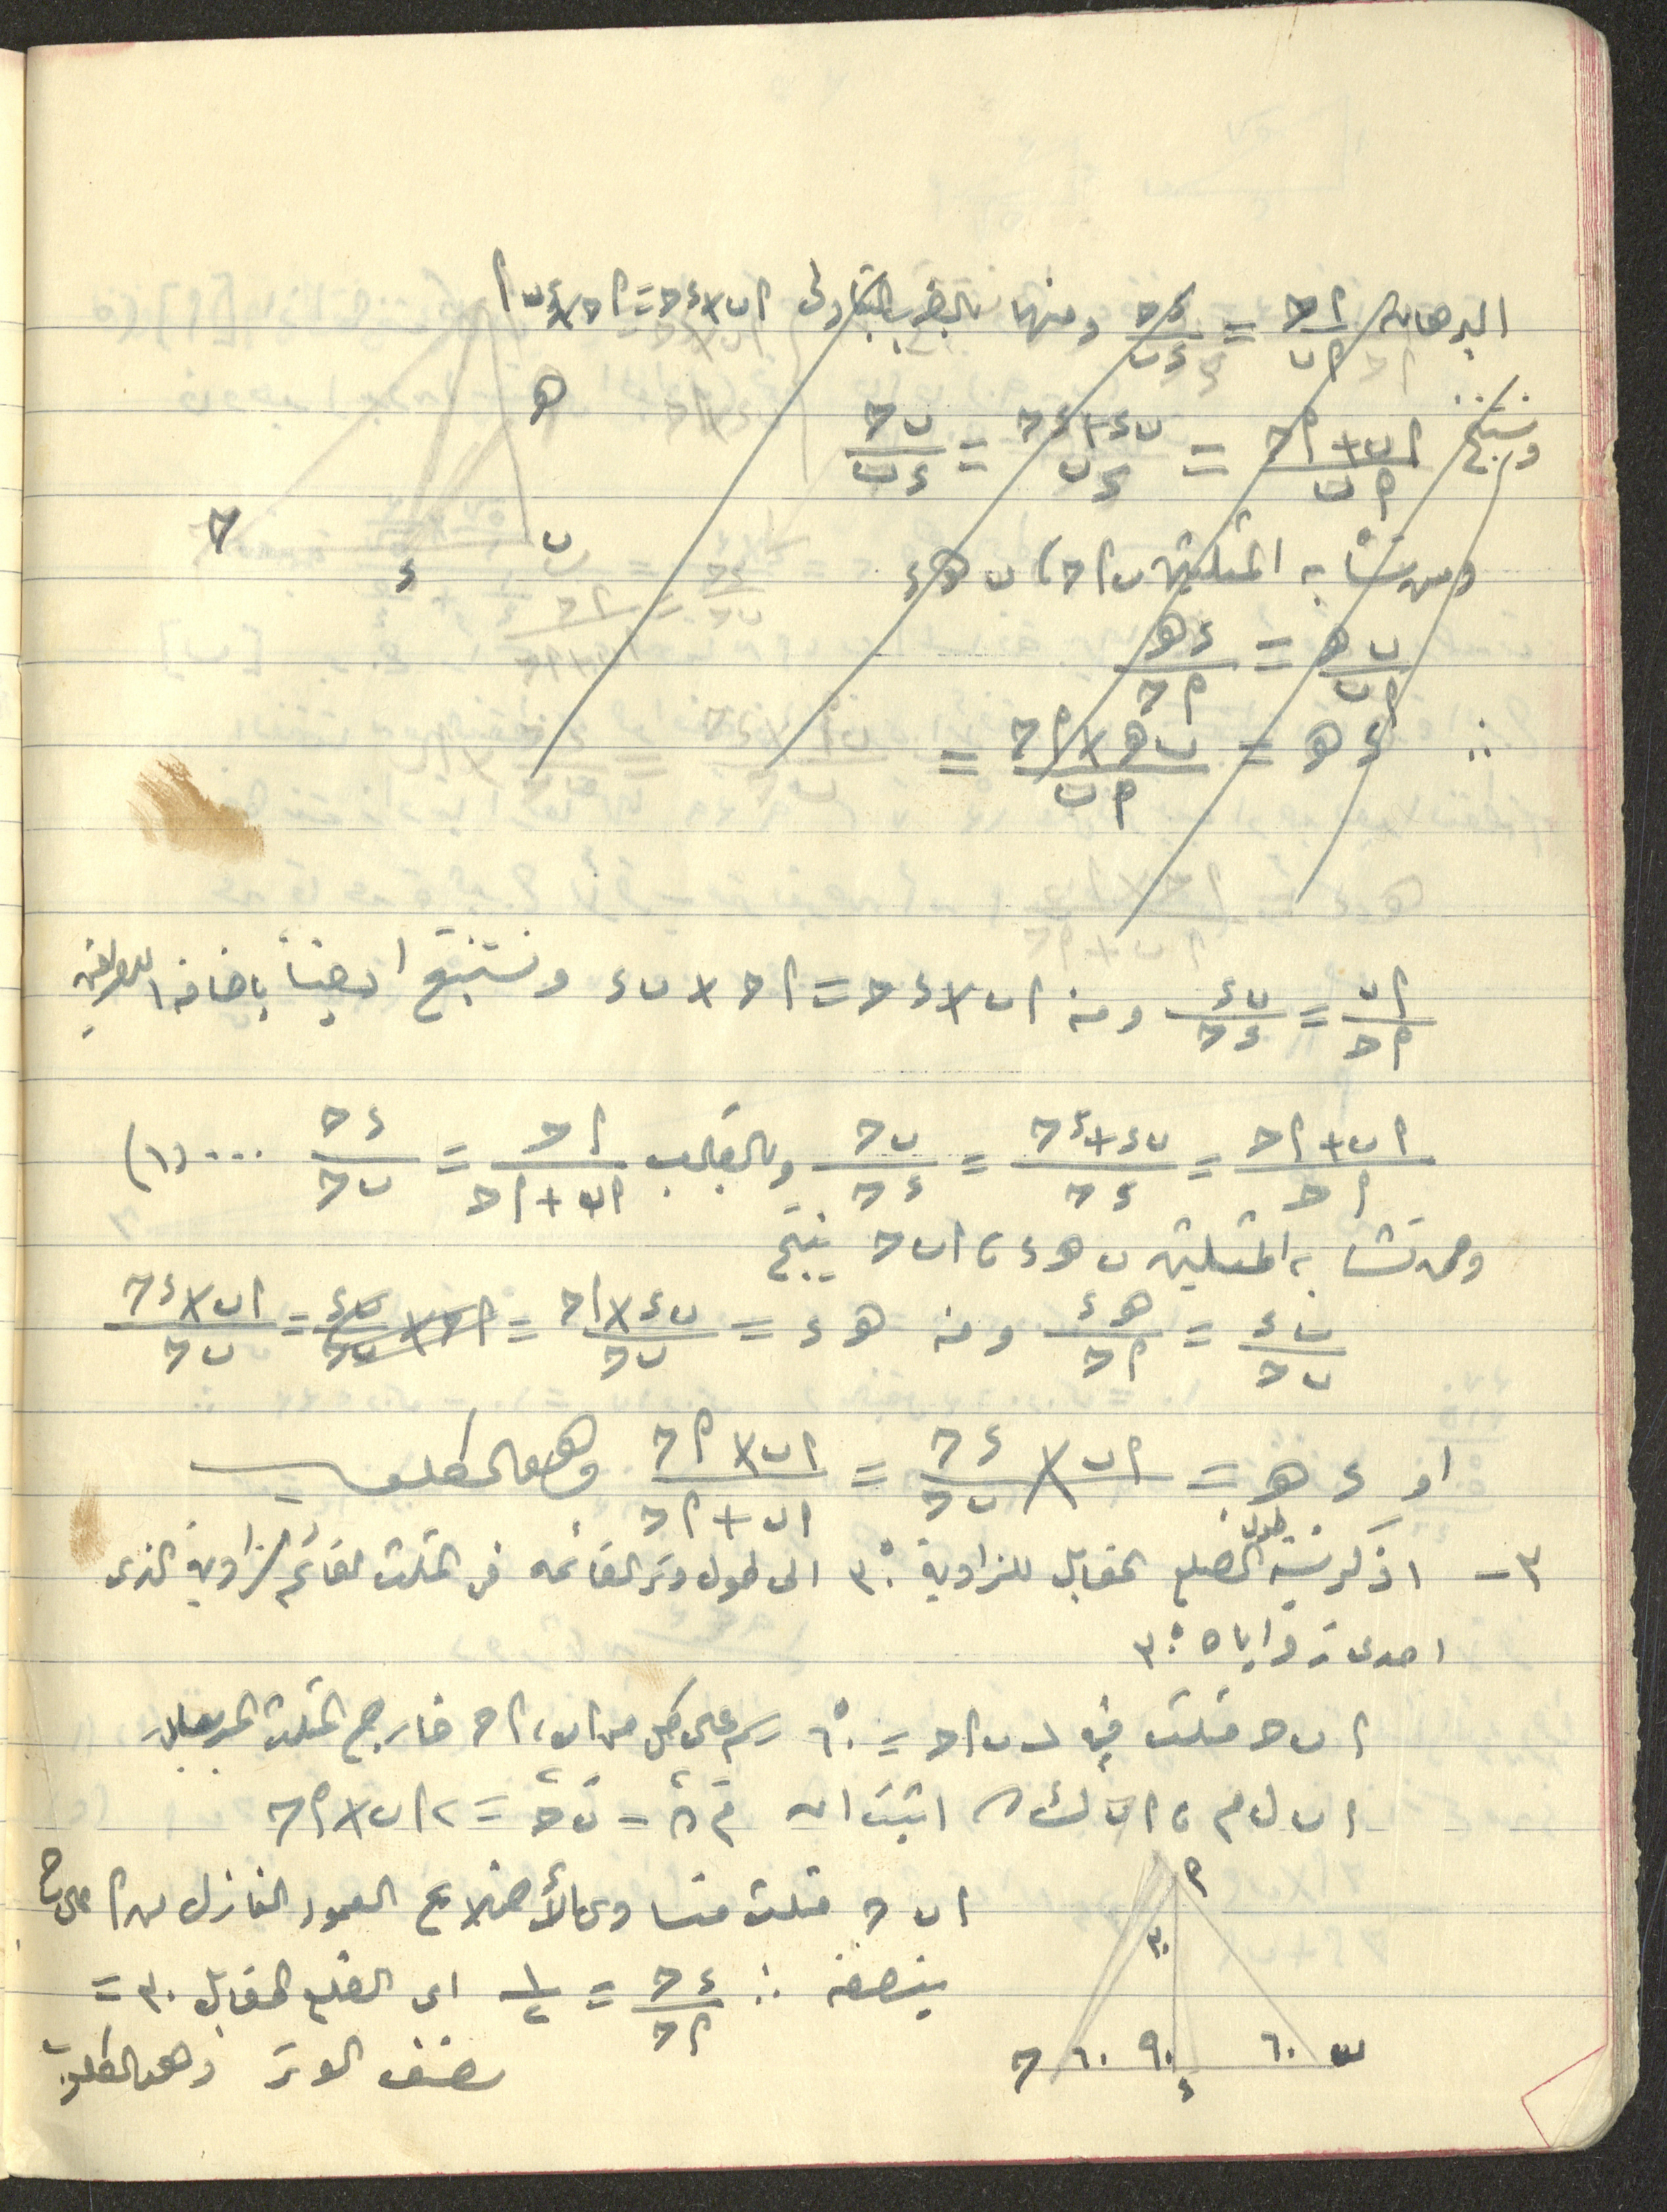 البرهان ا ح / ا ب = ء ح / ء ب ومنها بالضرب التبادلى ا ب × ء ح = ا ح × ء ب
ا
ه
ب
ء
ح
ونستنتج ا ب + ا ح / ا ب = ب ء + ء ح / ء ب = ب ح / ء ب
ومن تشابه المثلثين ب ا ح ، ب ه ء
ب ه / ا ب = ء ه / ا ح
∴ ء ه = ب ه × ا ح / ا ب =
ا ب / ا ح = ب ء / ء ح ومنه ا ب × ء ح = ا ح × ب ء ونستنتج ايضاً باضافة ١ للطرفين
ا ب + ا ح / ا ح = ب ء + ء ح / ء ح = ب ح / ء ح وبالقلب ا ح / ا ب + ا ح = ء ح / ب ح ... (١)
ومن تشابه المثلثين ب ه ء ، ا ب ح ينتج
ب ء / ب ح = ه ء / ا ح ومنه ه ء = ب ء × ا ح / ب ح = ا ح × ب ء / ب ح = ا ب × ء ح / ب ح
او ء ه = ا ب × ء ح / ب ح = ا ب × ا ح / ا ب + ا ح وهو المطلوب
٣ - اذكر نسبة طول الضلع المقابل للزاوية ٣٠° الى طول وتر القائمه فى المثلث القائم الزاوية الذى
احدى زواياه ٣٠°
ا ب ح مثلث فيه ∠ ب ا ح = ٦٠° رسم على كل من ا ب ، ا ح خارج المثلث المربعان
ا ب ل م ، ا ح اثبت ان م ن² - ب ح² = ٢ ا ب × ا ح
ا ب ح مثلث متساوى الأضلاع العمود النازل من ا على ب ح
ينصفه ∴ ء ح / ا ح = ١ / ٢ اى الضلع المقابل ٣٠ =
نصف الوتر وهو المطلوب
ا
٣٠
ح ٦٠ ٩٠ ٦٠ ب
ء